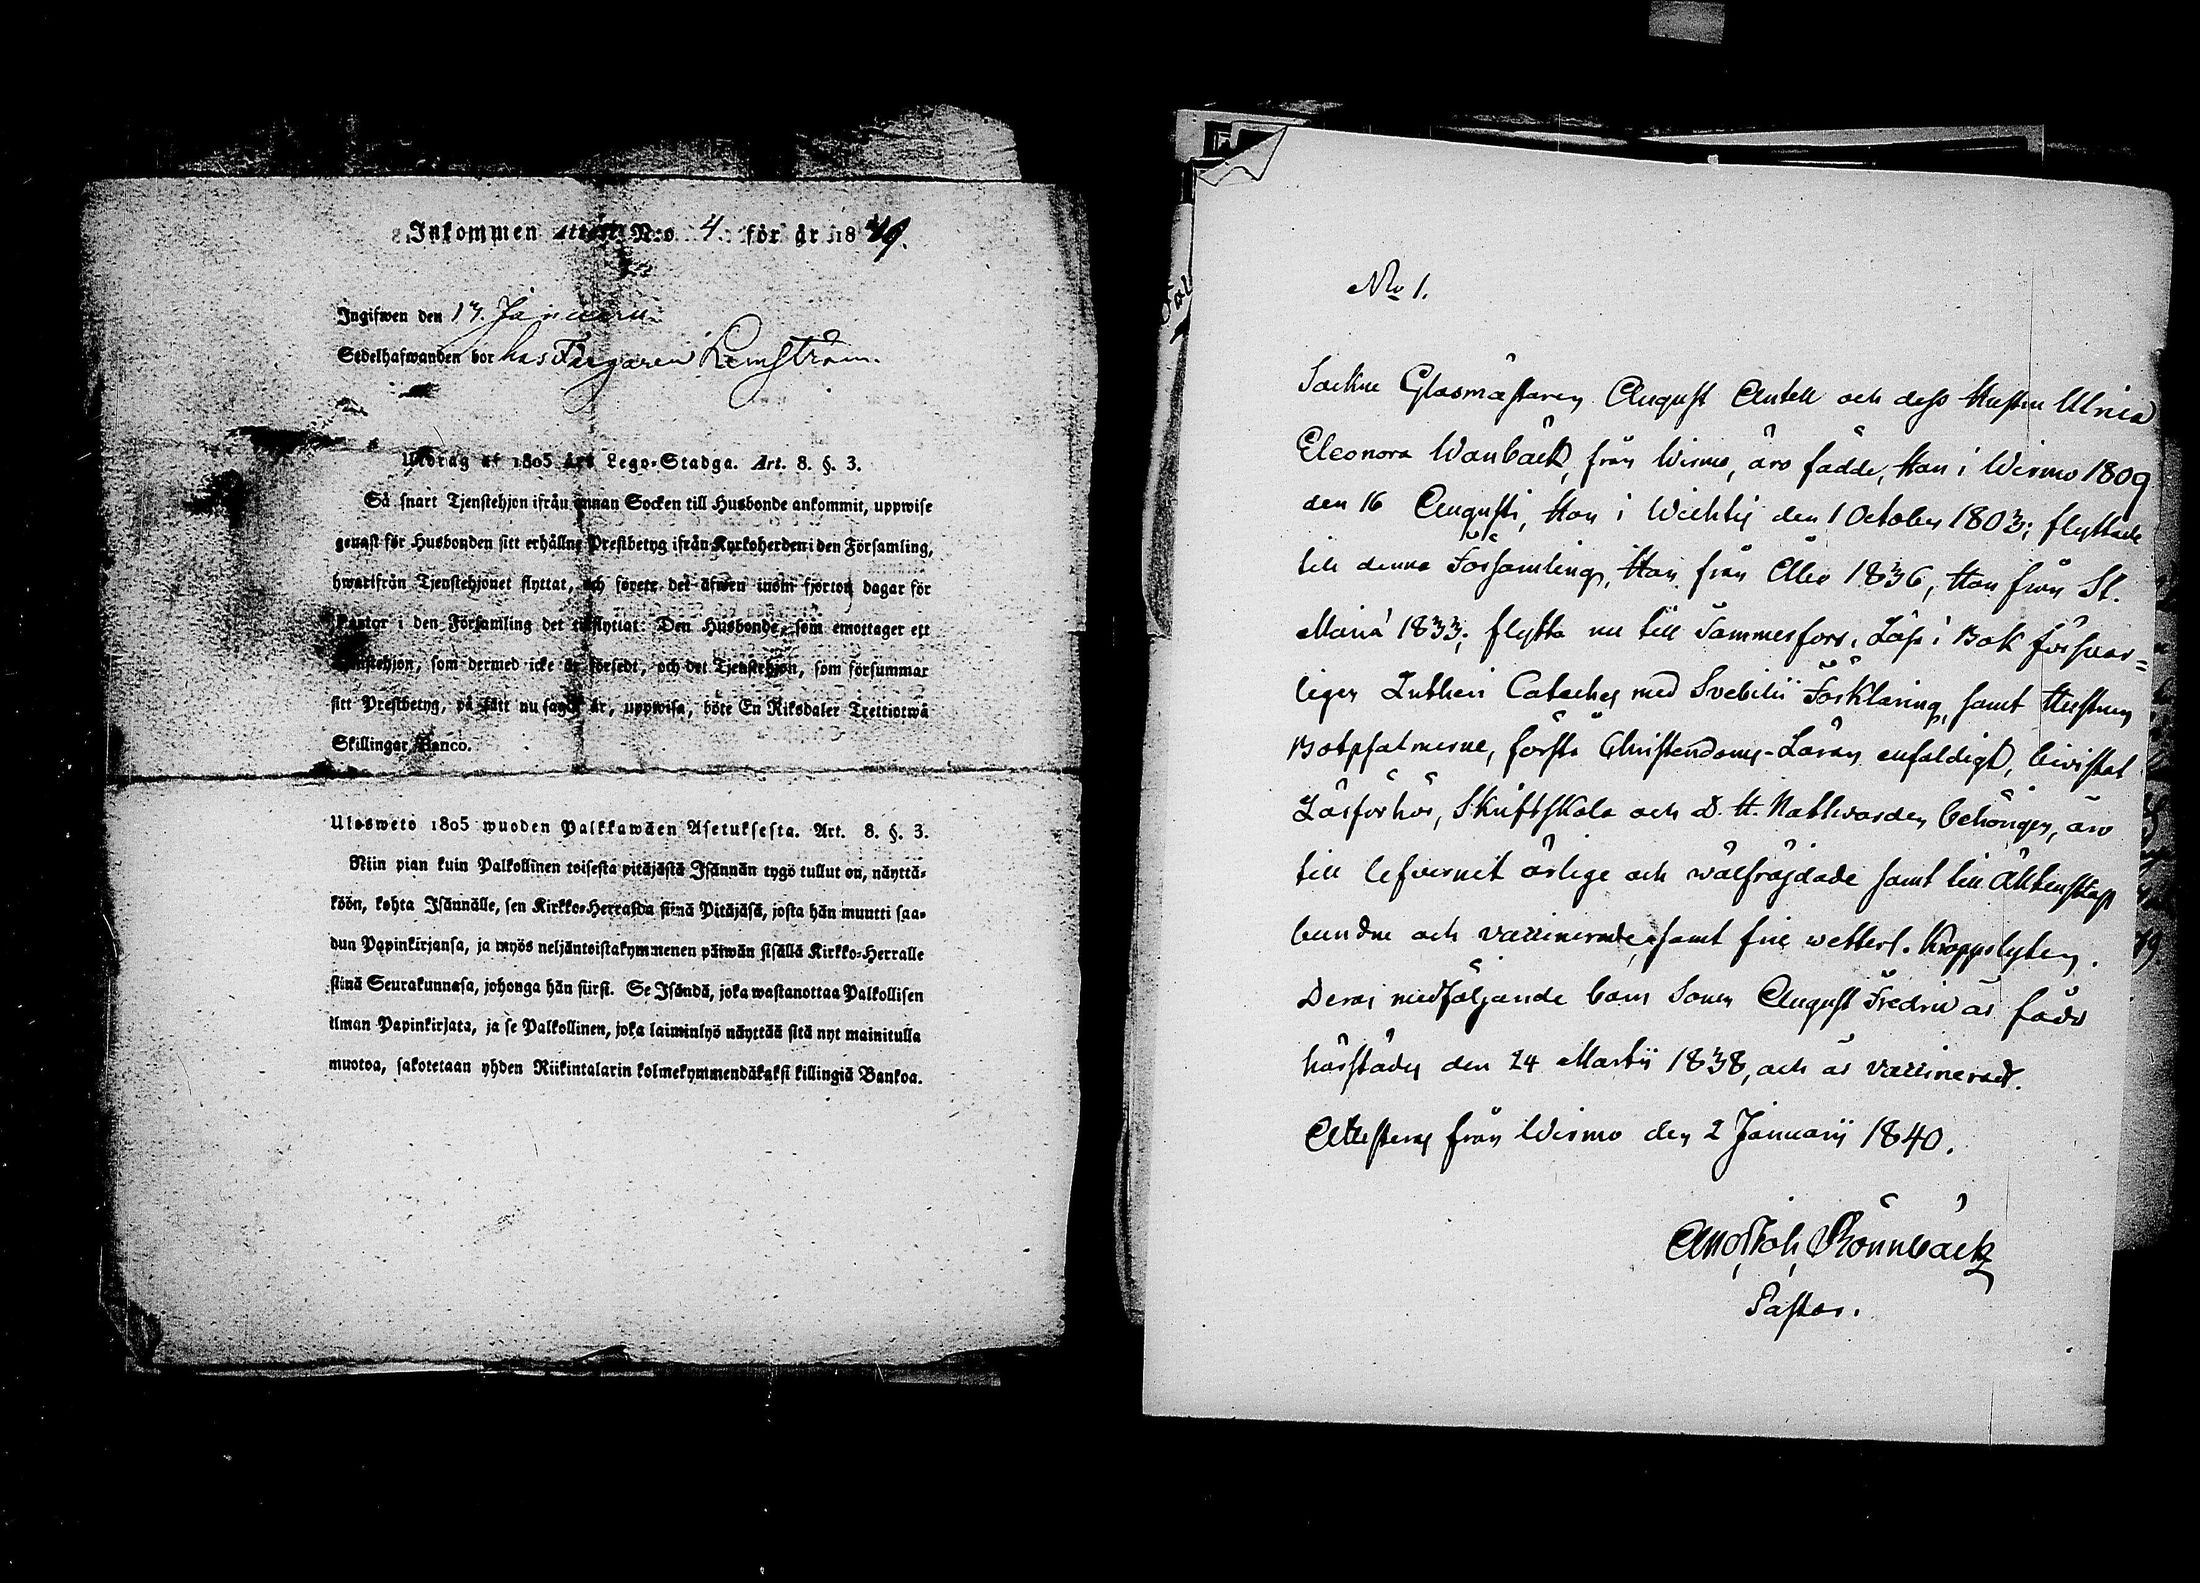 Inkommen attest N:o 4 för år 1849.
Ingifwen den 17. Januarii
Sedelhafwanden bor hos Färgaren Lemström.
Utdrag af 1805 års Lego-Stadga. Art. 8. §. 3.
Så snart Tjenstehjon ifrån annan Socken till Husbonde ankommit, uppwise
genast för Husbonden sitt erhållne Prestbetyg ifrån Kyrkoherden i den Församling,
hwarifrån Tjenstehjonet flyttat, och förete det äfwen inom fjorton dagar för
Pastor i den Församling det tillflyttat. Den Husbonde, som emottager ett
Tjenstehjon, som dermed icke är försedt, och det Tjenstehjon, som försummar
sitt Prestbetyg, på sätt nu sagdt är, uppwisa, böte En Riksdaler Trettiotwå
Skillingar Banco.
Ulosweto 1805 wuoden Palkkawäen Asetuksesta. Art. 8. §. 3.
Niin pian kuin Palkollinen toisesta pitäjästä Isännän tygö tullut on, näyttä-
köön, kohta Isännälle, sen Kirkko-Herralda siinä Pitäjäsä, josta hän muutti saa-
dun Papinkirjansa, ja myös neljäntoistakymmenen päiwän sisällä Kirkko-Herralle
siinä Seurakunnasa, johonga hän siirsi. Se Isändä, joka wastanottaa Palkollisen
ilman Papinkirjata, ja se Palkollinen, joka laiminlyö näyttää sitä nyt mainitulla
muotoa, sakotetaan yhden Riikintalarin kolmekymmendäkaksi killingiä Bankoa.
No 1.
Sockne Glasmästaren August Antell och dess Hustru Ulrica
Eleonora Wanbäck, från Wirmo, äro födde, Han i Wirmo 1809
den 16 Augusti, Hon i Wichtis den 1 October 1803; flyttade
till denna Församling, Han från Åbo 1836, Hon från St.
Mariæ 1833; flytta nu till Tammerfors. Läsa i Bok försvar-
ligen Lutheri Cateches med Svebilii Förklaring, samt Hustrun
Botpsalmerne, förstå Christendoms-Läran enfaldigt, bivistat
Läsförhör, Skriftskola och D. H. Nattvarden behörigen, äro
till lefvernet ärlige och wälfrägdade samt till Äktenskap
bundne och vaccinerade, samt frie wetterl. Kroppslyten.
Deras medföljande barn Sonen August Fredric är född
härstädes den 24 Martii 1838, och är vaccinerad.
Attesteras från Wirmo den 2 Januarii 1840.
Rönnbäck
Pastor.